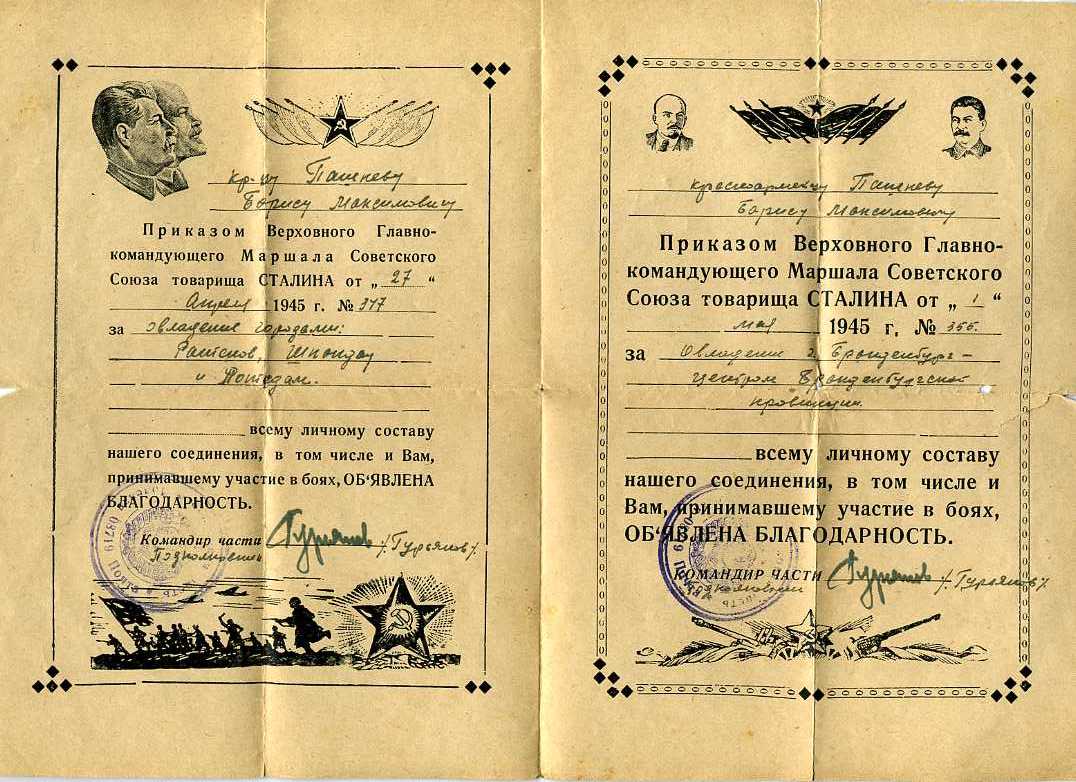 кр-цу Пашневу
Борису Максимовичу
Приказом Верховного Главно-
командующего Маршала Советского
Союза товарища СТАЛИНА от „ 27 “
Апреля 1945 г. № 347
за овладение городами:
Ратенов, Шпандау
и Потсдам.
всему личному составу
нашего соединения, в том числе и Вам,
принимавшему участие в боях, ОБ‘ЯВЛЕНА
БЛАГОДАРНОСТЬ.
Командир части
Подполковник
/Гурьянов/
08719
красноармейцу Пашневу
Борису Максимовичу
Приказом Верховного Главно-
командующего Маршала Советского
Союза товарища СТАЛИНА от „ 1 “
мая 1945 г. № 355.
за Овладение г. Бранденбург –
центром Бранденбургской
провинции.
всему личному составу
нашего соединения, в том числе и
Вам, принимавшему участие в боях,
ОБ‘ЯВЛЕНА БЛАГОДАРНОСТЬ.
КОМАНДИР ЧАСТИ
Подполковник
/Гурьянов/